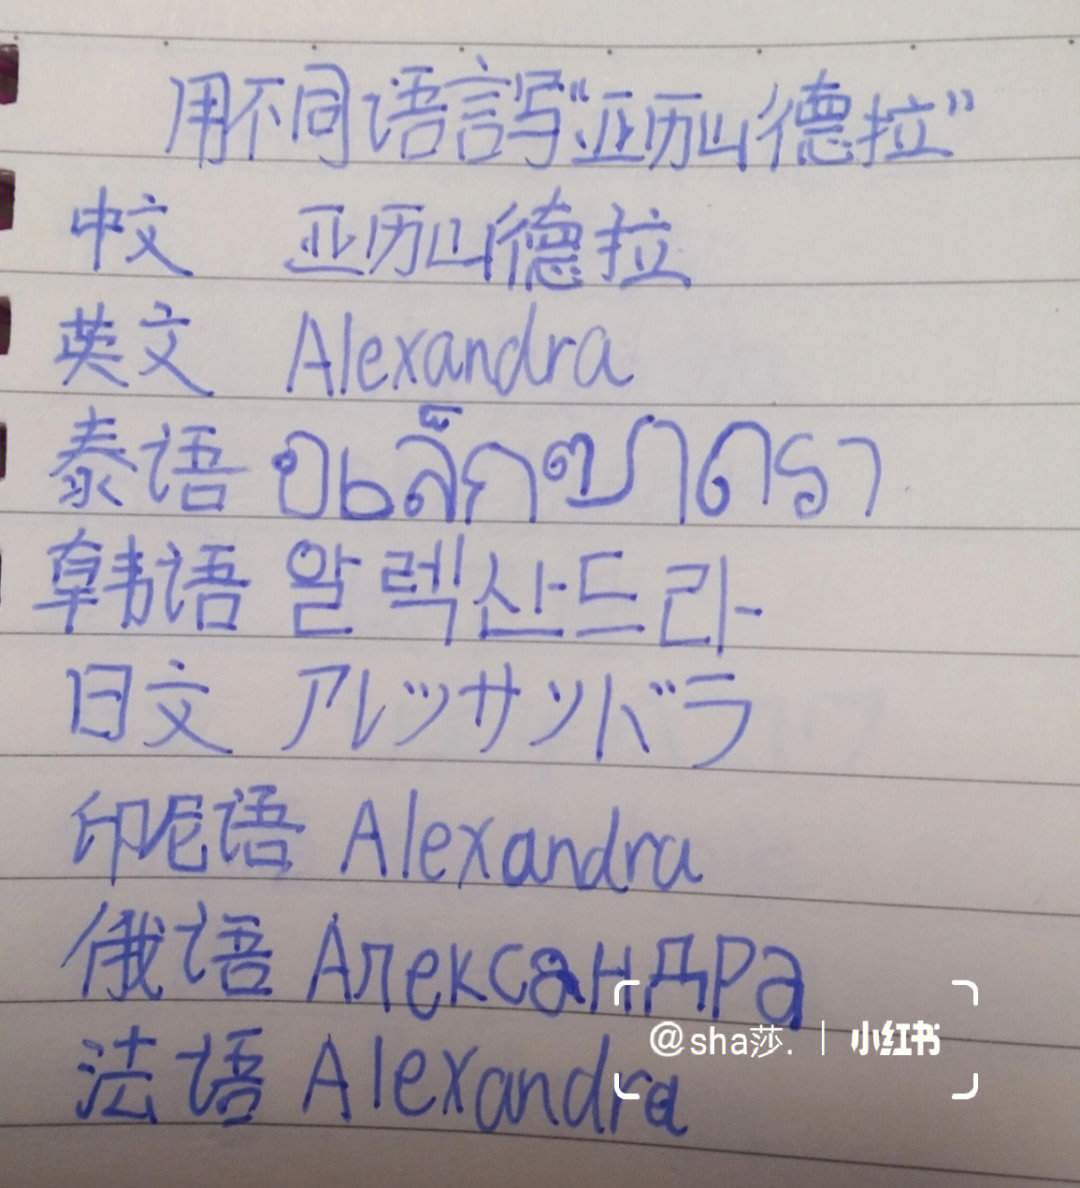 用不同语言写“亚历山德拉”
中文 亚历山德拉
英文 Alexandra
泰语 อเล็กซาดรา
韩语 알렉산드라
日文 アレッサンドラ
印尼语 Alexandra
俄语 Александра
法语 Alexandra
@sha莎. | 小红书